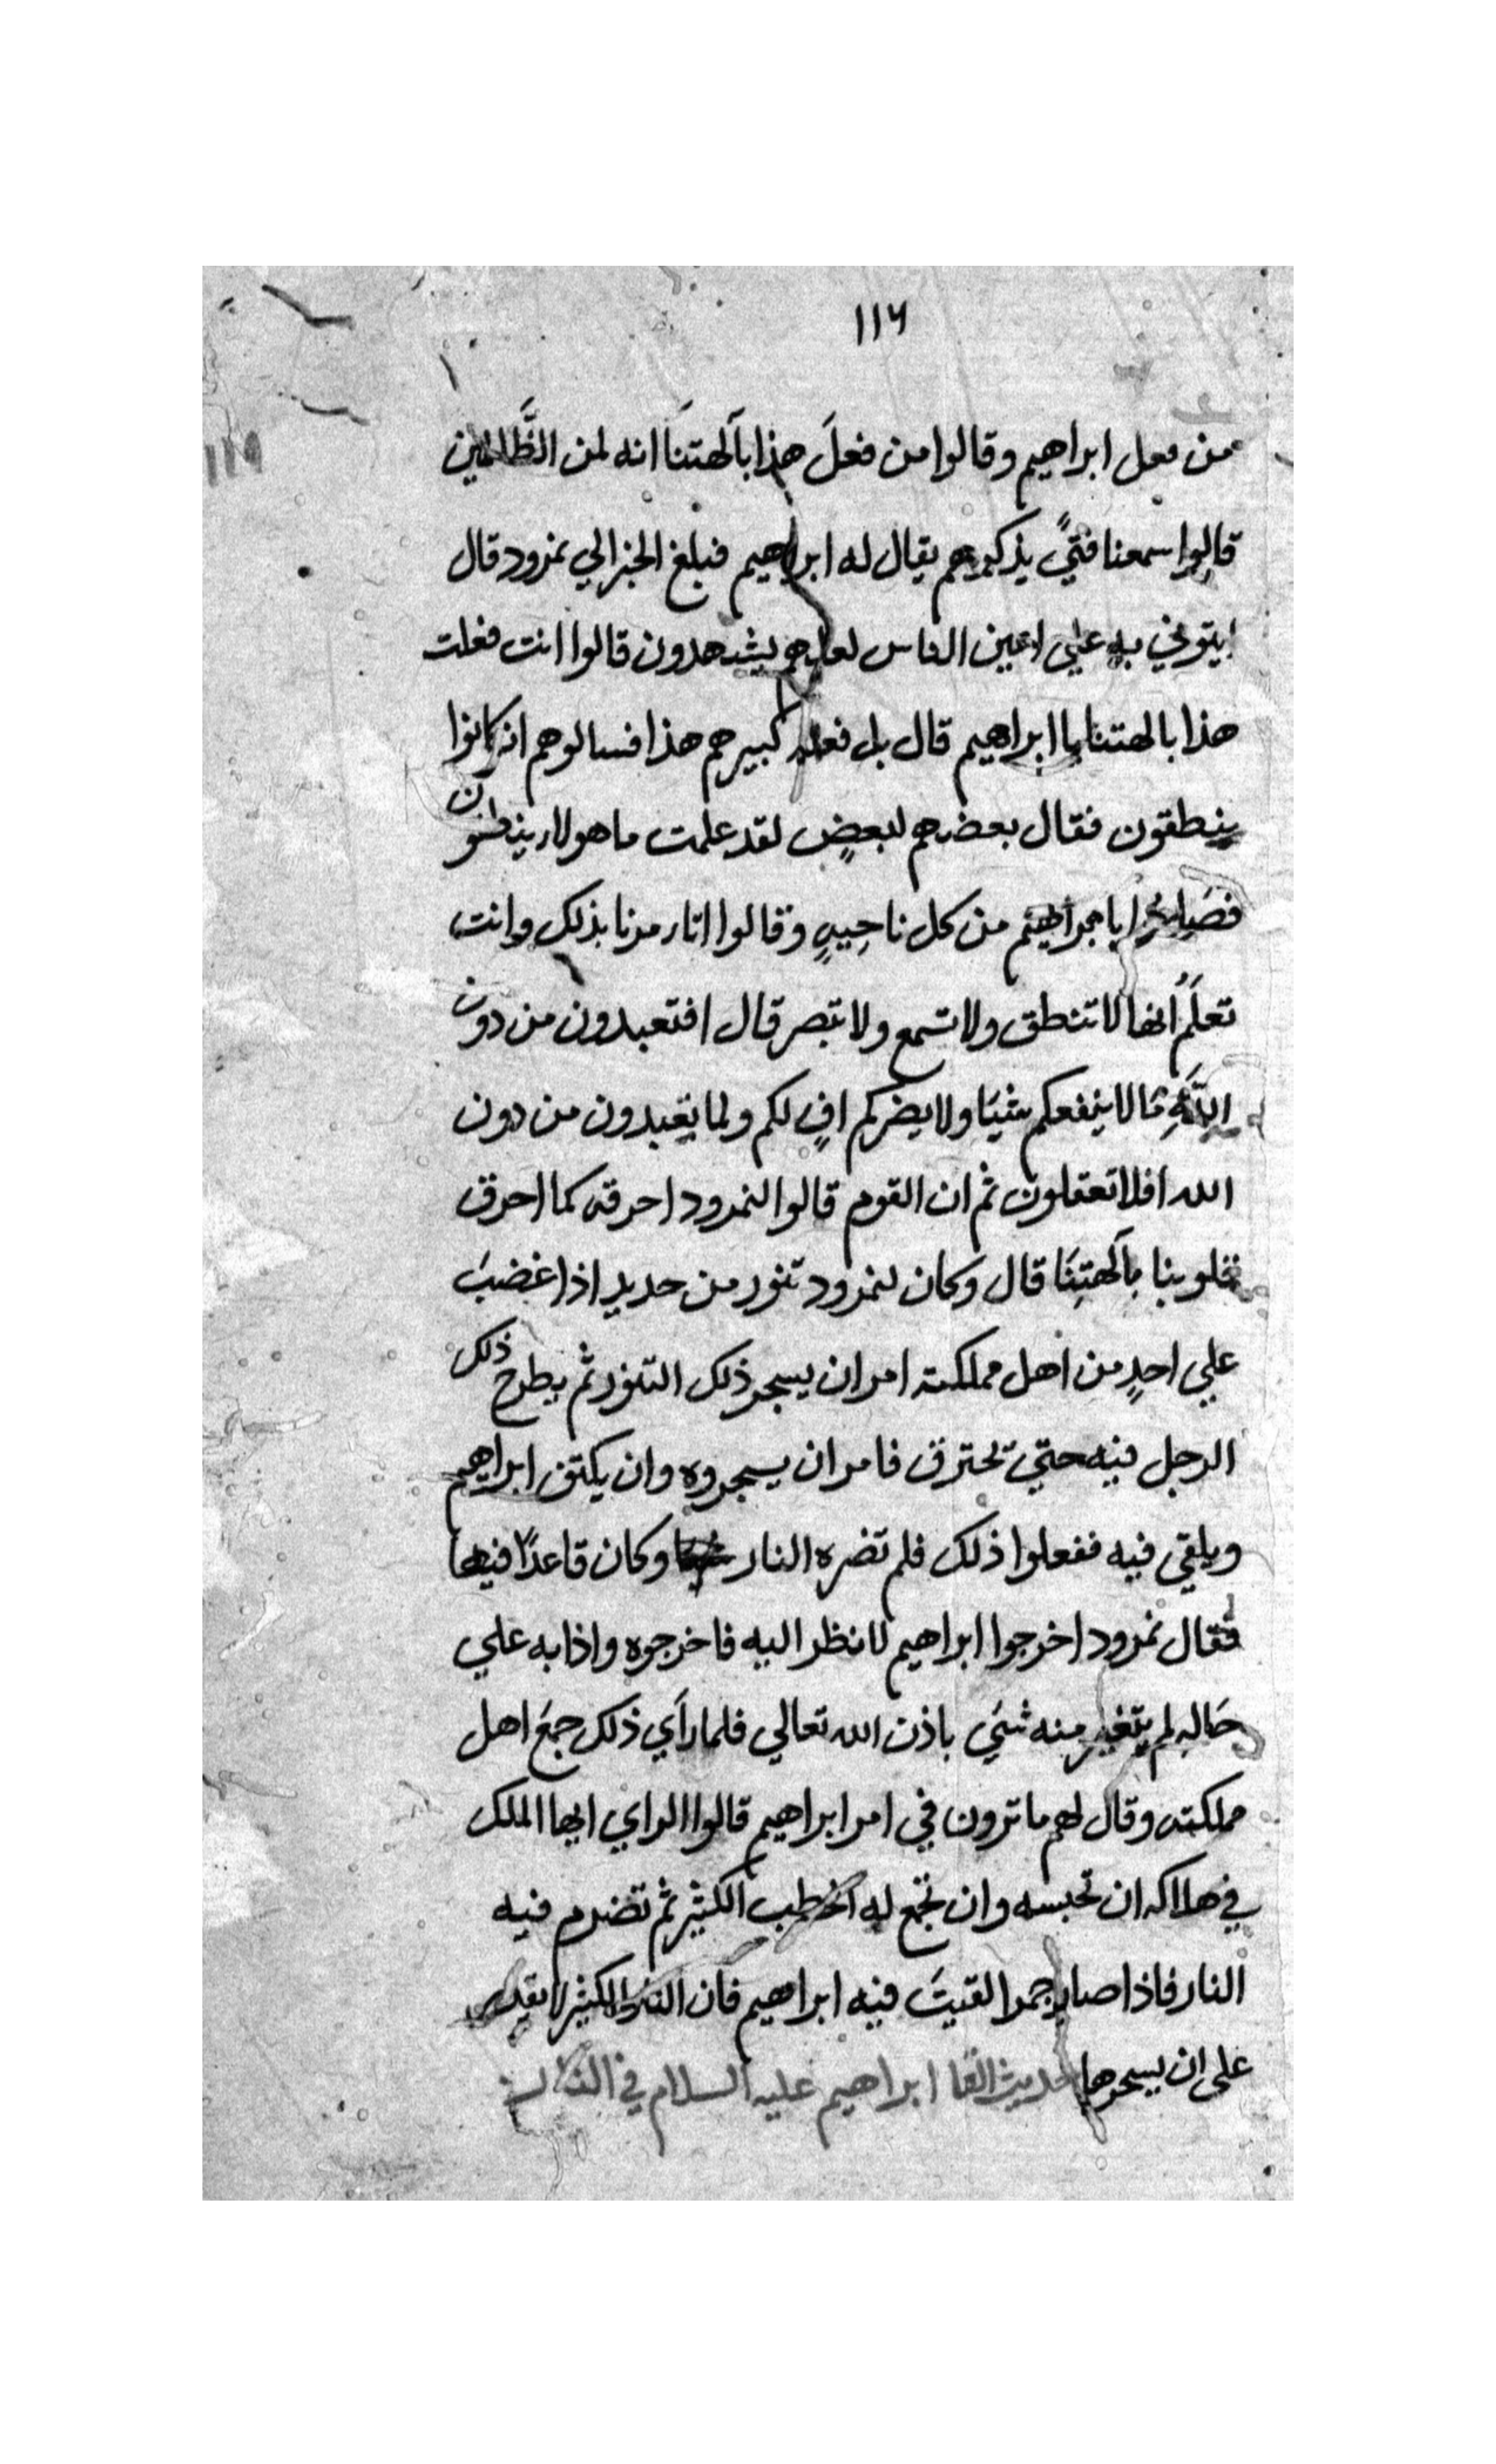 ١١٦
١١٩
من فعل ابراهيم وقالوا من فعلَ هذا بآلهتنَا انه لمن الظَّالمين
قالوا سمعنا فتيً يذكرهم يقال له ابراهيم فبلغ الخبر الي نمرود قال
ايتوني به علي اعين الناس لعلهم يشهدون قالوا انت فعلت
هذا بالهتنا يا ابراهيم قال بل فعله كبيرهم هذا فسالوهم ان كانوا
ينطقون فقال بعضهم لبعضٍ لقد علمت ما هولاء ينطقون
من كل ناحيهٍ وقالوا اتامرنا بذلك وانت
تعلَمُ انها لا تنطق ولا تسمع ولا تبصر قال افتعبدون من دون
اللَّهِ مَا لا ينفعكم شيَا ولا يضركم افٍ لكم ولما تعبدون من دون
الله افلا تعقلون ثم ان القوم قالوا لنمرود احرقه كما احرق
قلوبنا بآلهتِنَا قال وكان لنمرود تنور من حديد اذا غضبَ
علي احدٍ من اهل مملكته امر ان يسجر ذلك التنور ثم يطرح ذلك
الرجل فيه حتي تحترق فامر ان يسجروه وان يكتف ابراهيم
ويلقي فيه ففعلوا ذلك فلم تضره النار وكان قاعدًا فيها
فقال نمرود اخرجوا ابراهيم لانظر اليه فاخرجوه واذا به علي
حَاله لم يتغير منه شَي باذن الله تعالي فلما رآي ذلك جمعَ اهل
مملكته وقال لهم ما ترون في امر ابراهيم قالوا الراي ايها الملك
في هلاكه ان تحبسه وان تجمع له الحطب الكثير ثم تضرم فيه
النار فاذا صار جمرا القيتَ فيه ابراهيم فان الكثير لا يقدر
على ان يسحرها حديث القا ابراهيم عليه السلام في النار